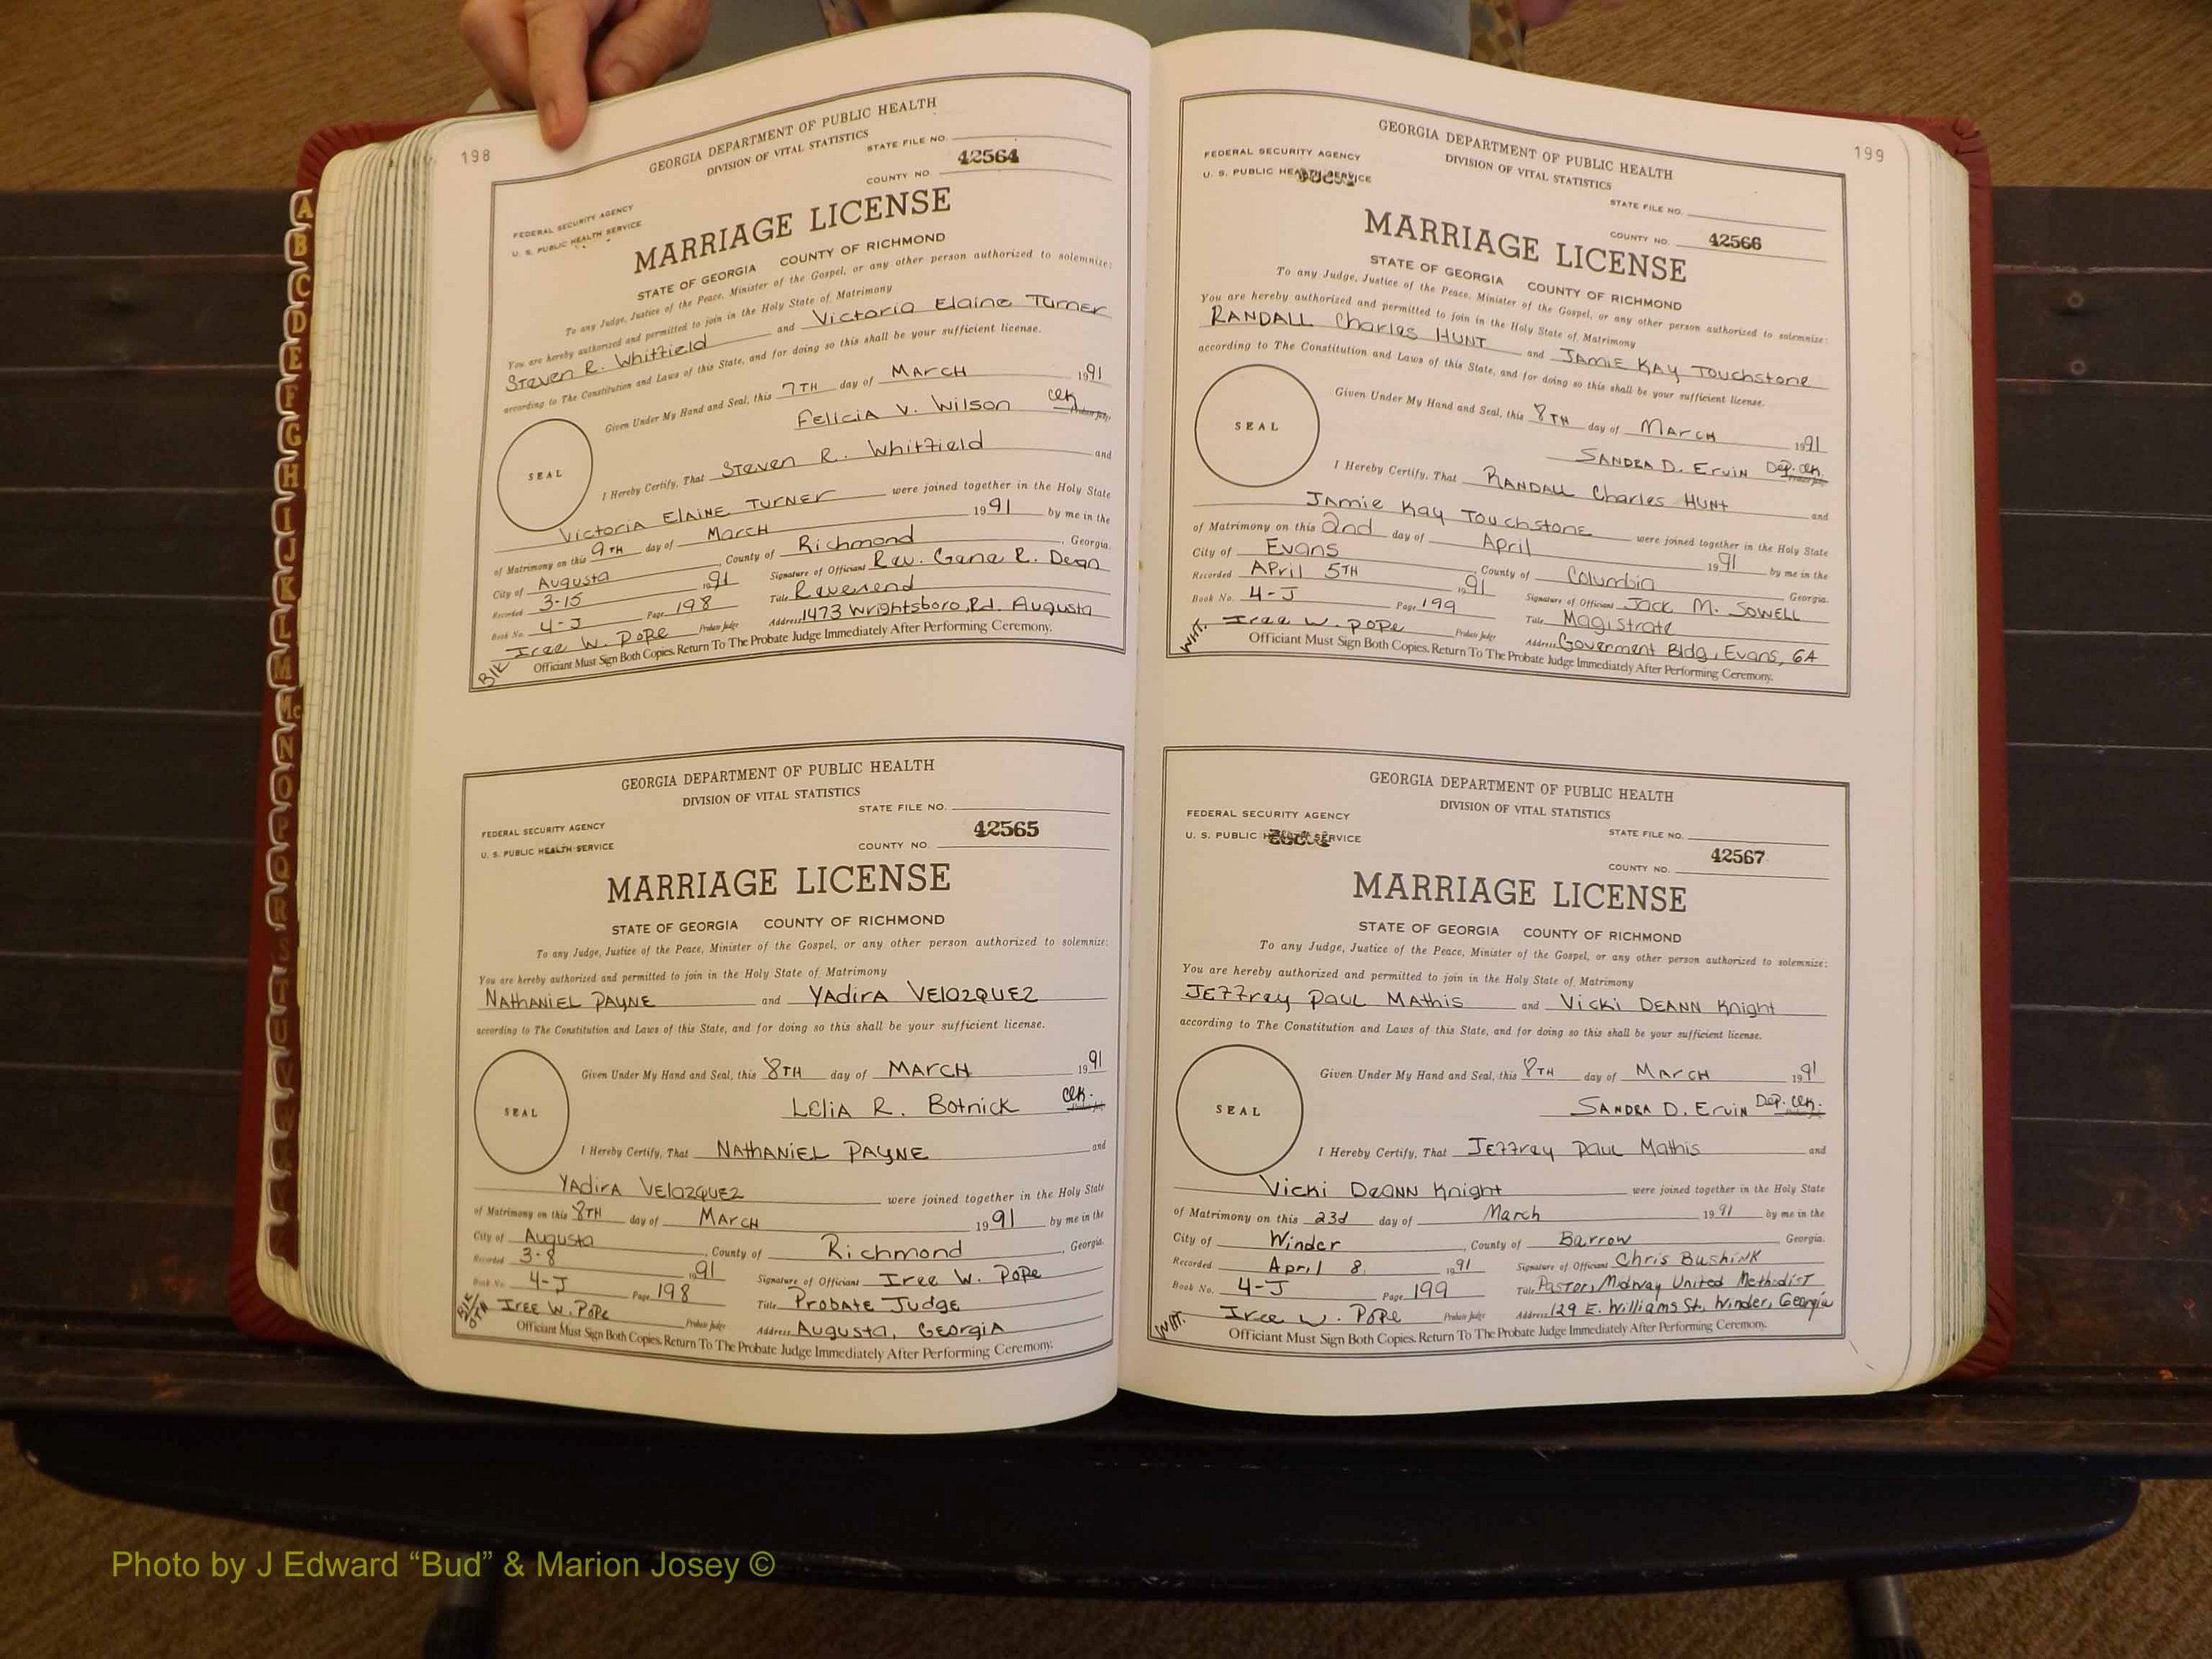 198
GEORGIA DEPARTMENT OF PUBLIC HEALTH
DIVISION OF VITAL STATISTICS
STATE FILE NO.
42564
COUNTY NO.
FEDERAL SECURITY AGENCY
U. S. PUBLIC HEALTH SERVICE
MARRIAGE LICENSE
STATE OF GEORGIA COUNTY OF RICHMOND
To any Judge, Justice of the Peace, Minister of the Gospel, or any other person authorized to solemnize:
You are hereby authorized and permitted to join in the Holy State of Matrimony
Steven R. Whitfield and Victoria Elaine Turner
according to The Constitution and Laws of this State, and for doing so this shall be your sufficient license.
Given Under My Hand and Seal, this 7TH day of MARCH 1991
Felicia V. Wilson Clk.
SEAL
I Hereby Certify, That Steven R. Whitfield and
Victoria ELAINE TURNER were joined together in the Holy State
of Matrimony on this 9TH day of March 1991 by me in the
City of Augusta, County of Richmond, Georgia.
Recorded 3-15 1991 Signature of Officiant Rev. Gene R. Dean
Book No. 4-J Page 198 Title Reverend
Iree W. Pope Probate Judge Address 1473 Wrightsboro Rd. Augusta
Officiant Must Sign Both Copies. Return To The Probate Judge Immediately After Performing Ceremony.
Blk
GEORGIA DEPARTMENT OF PUBLIC HEALTH
DIVISION OF VITAL STATISTICS
STATE FILE NO.
42565
COUNTY NO.
FEDERAL SECURITY AGENCY
U. S. PUBLIC HEALTH SERVICE
MARRIAGE LICENSE
STATE OF GEORGIA COUNTY OF RICHMOND
To any Judge, Justice of the Peace, Minister of the Gospel, or any other person authorized to solemnize:
You are hereby authorized and permitted to join in the Holy State of Matrimony
NATHANIEL PAYNE and YAdirA VElAZQUEZ
according to The Constitution and Laws of this State, and for doing so this shall be your sufficient license.
Given Under My Hand and Seal, this 8TH day of MARCH 1991
LEliA R. Botnick Clk.
SEAL
I Hereby Certify, That NATHANIEL PAYNE and
YAdirA VElAZQUEZ were joined together in the Holy State
of Matrimony on this 8TH day of MARCH 1991 by me in the
City of Augusta, County of Richmond, Georgia.
Recorded 3-8 1991 Signature of Officiant Iree W. Pope
Book No. 4-J Page 198 Title Probate Judge
Iree W. Pope Probate Judge Address Augusta, Georgia
Officiant Must Sign Both Copies. Return To The Probate Judge Immediately After Performing Ceremony.
Blk/OTH
199
GEORGIA DEPARTMENT OF PUBLIC HEALTH
DIVISION OF VITAL STATISTICS
FEDERAL SECURITY AGENCY
U. S. PUBLIC HEALTH SERVICE
STATE FILE NO.
COUNTY NO. 42566
MARRIAGE LICENSE
STATE OF GEORGIA COUNTY OF RICHMOND
To any Judge, Justice of the Peace, Minister of the Gospel, or any other person authorized to solemnize:
You are hereby authorized and permitted to join in the Holy State of Matrimony
RANDALL Charles HUNT and JAMIE KAY Touchstone
according to The Constitution and Laws of this State, and for doing so this shall be your sufficient license.
Given Under My Hand and Seal, this 8TH day of MARCH 1991
SANDRA D. Ervin Dep. Clk.
SEAL
I Hereby Certify, That RANDALL Charles HUNT and
Jamie Kay Touchstone were joined together in the Holy State
of Matrimony on this 2nd day of April 1991 by me in the
City of Evans, County of Columbia Georgia.
Recorded April 5TH 1991 Signature of Officiant Jack M. Sowell
Book No. 4-J Page 199 Title Magistrate
Iree W. Pope Probate Judge Address Goverment Bldg, Evans, GA
Officiant Must Sign Both Copies. Return To The Probate Judge Immediately After Performing Ceremony.
WHT.
GEORGIA DEPARTMENT OF PUBLIC HEALTH
DIVISION OF VITAL STATISTICS
FEDERAL SECURITY AGENCY
U. S. PUBLIC HEALTH SERVICE
STATE FILE NO.
42567
COUNTY NO.
MARRIAGE LICENSE
STATE OF GEORGIA COUNTY OF RICHMOND
To any Judge, Justice of the Peace, Minister of the Gospel, or any other person authorized to solemnize:
You are hereby authorized and permitted to join in the Holy State of Matrimony
Jeffrey Paul Mathis and Vicki DEANN Knight
according to The Constitution and Laws of this State, and for doing so this shall be your sufficient license.
Given Under My Hand and Seal, this 8TH day of MARCH 1991
SANDRA D. Ervin Dep. Clk.
SEAL
I Hereby Certify, That Jeffrey Paul Mathis and
Vicki DeANN Knight were joined together in the Holy State
of Matrimony on this 23d day of March 1991 by me in the
City of Winder, County of Barrow Georgia.
Recorded April 8, 1991 Signature of Officiant Chris Bushink
Book No. 4-J Page 199 Title Pastor, Midway United Methodist
Iree W. Pope Probate Judge Address 129 E. Williams St., Winder, Georgia
Officiant Must Sign Both Copies. Return To The Probate Judge Immediately After Performing Ceremony.
WHT.
A
B
C
D
E
F
G
H
I
J
K
L
M
Mc
N
O
P
Q
R
S
T
U
V
Photo by J Edward “Bud” & Marion Josey ©